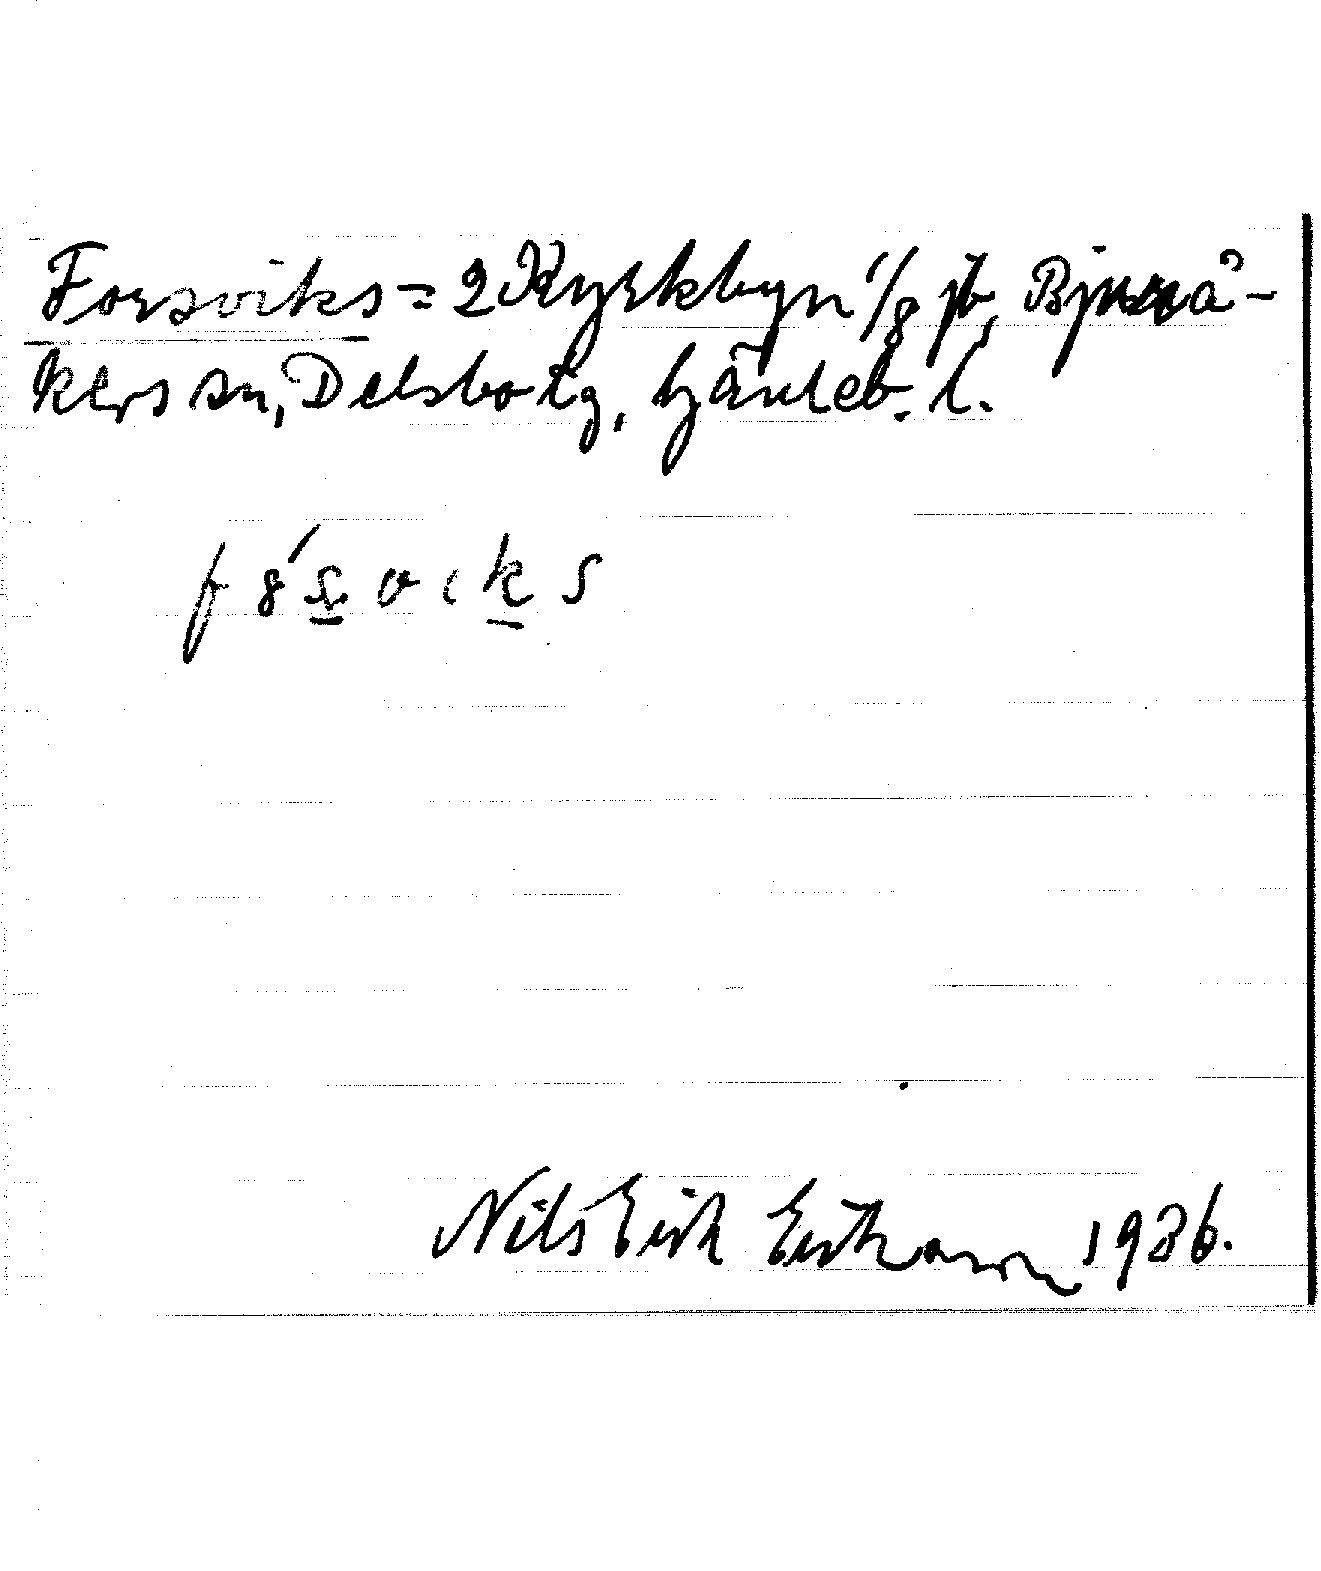 Forsviks = 2 Kyrkbyn 1/8 jb, Bjuråkers sn, Delsbo tg, Gävleb. l.
Nils Erik Eriksson 1936.